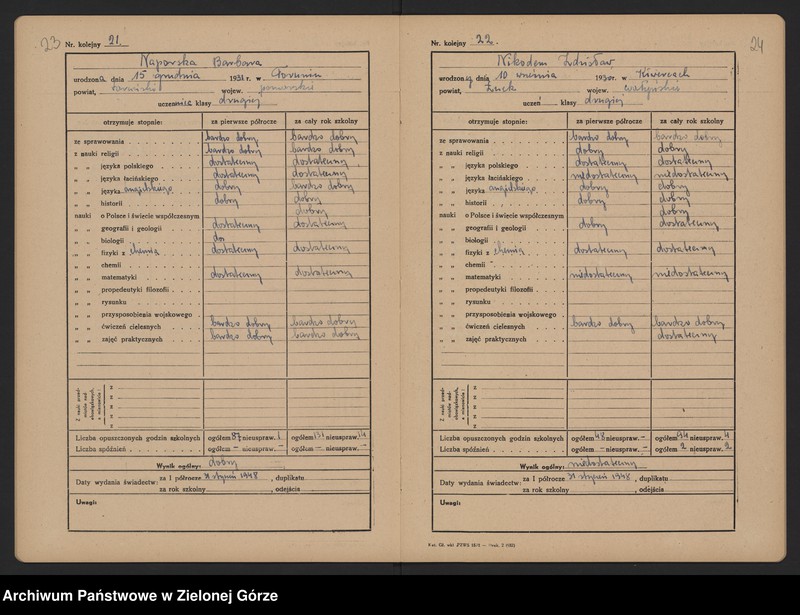 23
Nr. kolejny 21.
Naporska Barbara
urodzona dnia 15 grudnia 1931 r. w Toruniu
powiat, toruński wojew. pomorskie
uczennica klasy drugiej
otrzymuje stopnie: za pierwsze półrocze za cały rok szkolny
ze sprawowania bardzo dobry bardzo dobry
z nauki religii bardzo dobry bardzo dobry
„ „ języka polskiego dostateczny dostateczny
„ „ języka łacińskiego dostateczny dostateczny
„ „ języka angielskiego dobry bardzo dobry
„ „ historii dobry dobry
nauki o Polsce i świecie współczesnym dobry
„ „ geografii i geologii dostateczny dostateczny
„ „ biologii
„ „ fizyki z chemią dostateczny dostateczny
„ „ chemii
„ „ matematyki dostateczny dostateczny
„ „ propedeutyki filozofii
„ „ rysunku
„ „ przysposobienia wojskowego
„ „ ćwiczeń cielesnych bardzo dobry bardzo dobry
„ „ zajęć praktycznych bardzo dobry bardzo dobry
Liczba opuszczonych godzin szkolnych ogółem 87 nieuspraw. 1 ogółem 151 nieuspraw. 14
Liczba spóźnień ogółem – nieuspraw. – ogółem – nieuspraw. –
Wynik ogólny: dobry
Daty wydania świadectw: za I półrocze 31 styczeń 1948, duplikatu
za rok szkolny, odejścia
Uwagi:
24
Nr. kolejny 22.
Nikodem Zdzisław
urodzony dnia 10 września 1930 r. w Kiwercach
powiat, Łuck wojew. wołyńskie
uczeń klasy drugiej
otrzymuje stopnie: za pierwsze półrocze za cały rok szkolny
ze sprawowania bardzo dobry bardzo dobry
z nauki religii dobry dobry
„ „ języka polskiego dostateczny dostateczny
„ „ języka łacińskiego niedostateczny niedostateczny
„ „ języka angielskiego dobry dobry
„ „ historii dobry dobry
nauki o Polsce i świecie współczesnym dobry
„ „ geografii i geologii dobry dostateczny
„ „ biologii
„ „ fizyki z chemią dostateczny dostateczny
„ „ chemii
„ „ matematyki niedostateczny niedostateczny
„ „ propedeutyki filozofii
„ „ rysunku
„ „ przysposobienia wojskowego
„ „ ćwiczeń cielesnych bardzo dobry bardzo dobry
„ „ zajęć praktycznych dostateczny
Liczba opuszczonych godzin szkolnych ogółem 48 nieuspraw. – ogółem 94 nieuspraw. 4
Liczba spóźnień ogółem – nieuspraw. – ogółem 2 nieuspraw. 2
Wynik ogólny: niedostateczny
Daty wydania świadectw: za I półrocze 31 styczeń 1948, duplikatu
za rok szkolny, odejścia
Uwagi:
Archiwum Państwowe w Zielonej Górze